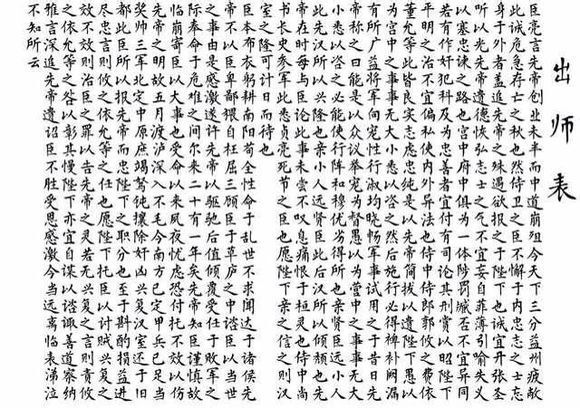 出师表
臣亮言先帝创业未半而中道崩殂今天下三分益州疲敝
此诚危急存亡之秋也然侍卫之臣不懈于内忠志之士忘
身于外者盖追先帝之殊遇欲报之于陛下也诚宜开张圣
听以光先帝遗德恢弘志士之气不宜妄自菲薄引喻失义
以塞忠谏之路也宫中府中俱为一体陟罚臧否不宜异同
若有作奸犯科及为忠善者宜付有司论其刑赏以昭陛下
平明之治不宜偏私使内外异法也侍中侍郎郭攸之费依
董允等此皆良实志虑忠纯是以先帝简拔以遗陛下愚以
为宫中之事事无大小悉以咨之然后施行必得裨补阙漏
有所广益将军向宠性行淑均晓畅军事试用之于昔日先
帝称之曰能是以众议举宠为督愚以为营中之事事无大
小悉以咨之必能使行阵和穆优劣得所也亲贤臣远小人
此先汉所以兴隆也亲小人远贤臣此后汉所以倾颓也先
帝在时每与臣论此事未尝不叹息痛恨于桓灵也侍中尚
书长史参军此悉贞亮死节之臣也愿陛下亲之信之则汉
室之隆可计日而待也
臣本布衣躬耕南阳苟全性命于乱世不求闻达于诸侯先
帝不以臣卑鄙猥自枉屈三顾臣于草庐之中谘臣以当世
之事由是感激遂许先帝以驱驰后值倾覆受任于败军之
际奉命于危难之间尔来二十有一年矣先帝知臣谨慎故
临崩寄臣以大事也受命以来夙夜忧虑恐付托不效以伤
先帝之明故五月渡泸深入不毛今南方已定甲兵已足当
奖帅三军北定中原庶竭驽钝攘除奸凶兴复汉室还于旧
都此臣所以报先帝而忠陛下之职分也至于斟酌损益进
尽忠言则攸之依允等之任也愿陛下托臣以讨贼兴复之
效不效则治臣之罪以告先帝之灵若无兴复之言则责攸
之依允等之咎以彰其慢陛下亦宜自谋以谘诹善道察纳
雅言深追先帝遗诏臣不胜受恩感激今当远离临表涕泣
不知所云